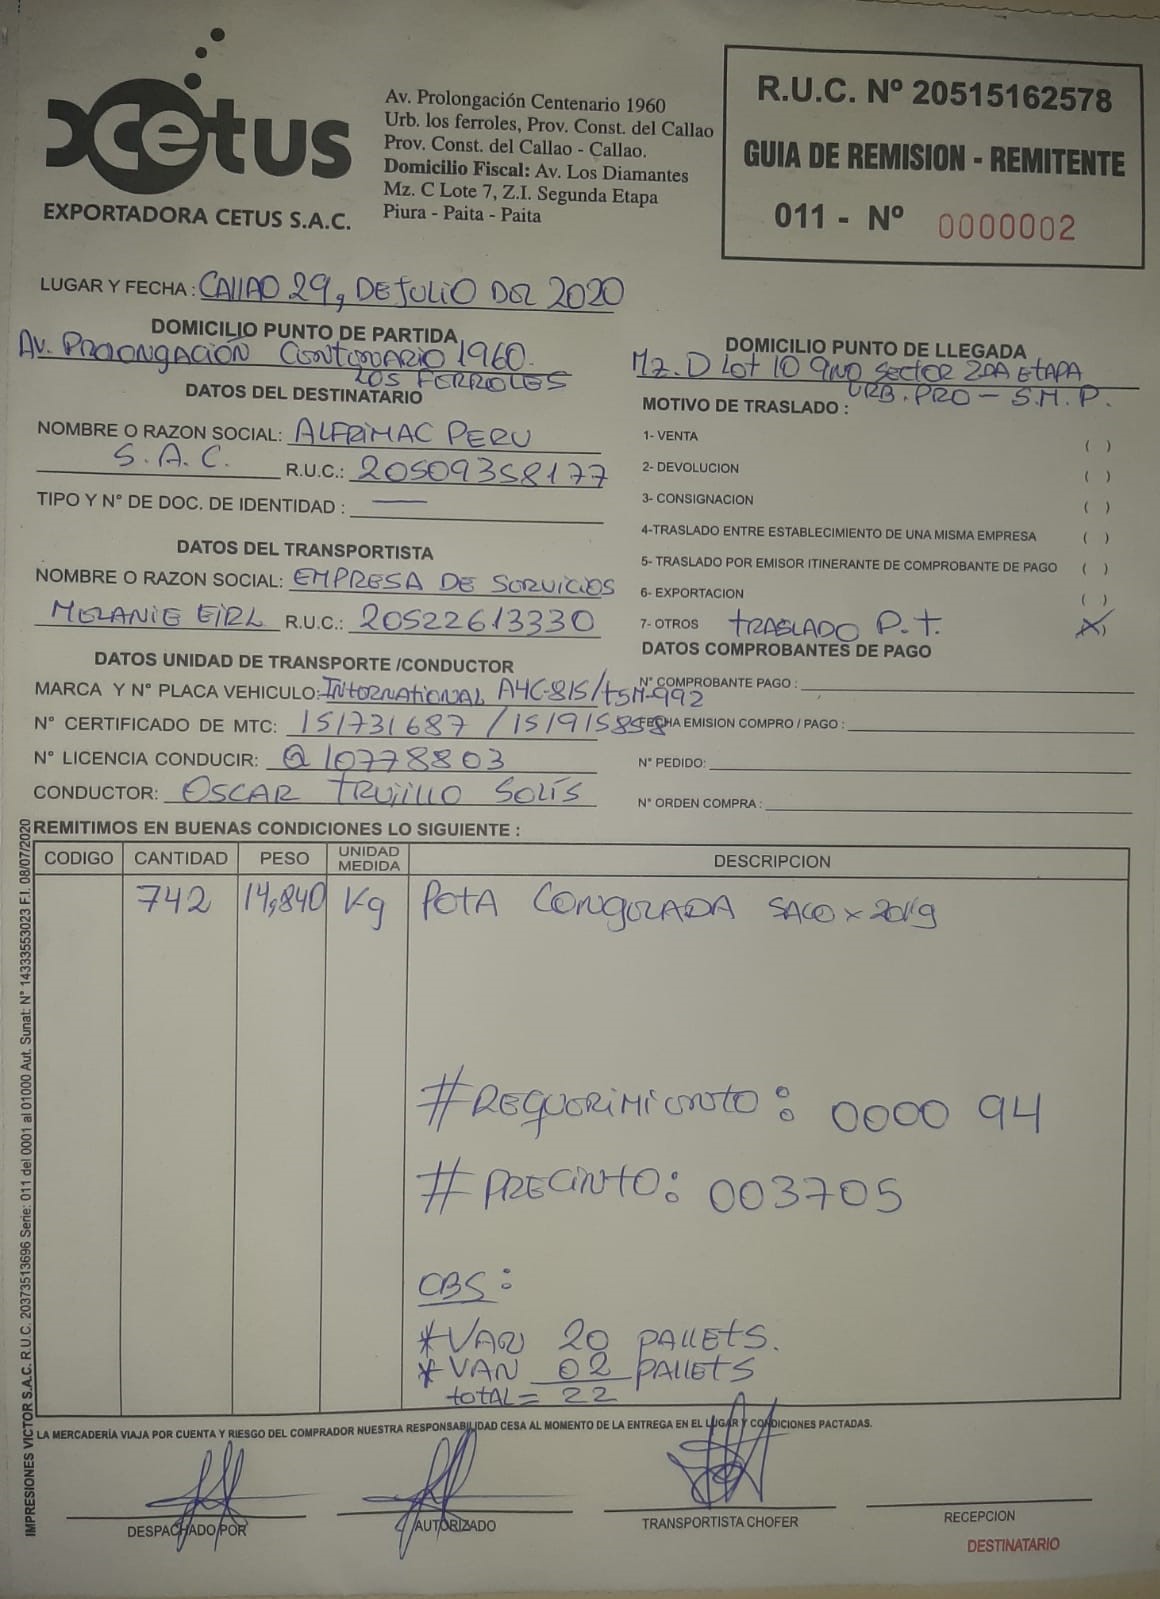 Xcetus
EXPORTADORA CETUS S.A.C.
Av. Prolongación Centenario 1960
Urb. los ferroles, Prov. Const. del Callao
Prov. Const. del Callao - Callao.
Domicilio Fiscal: Av. Los Diamantes
Mz. C Lote 7, Z.I. Segunda Etapa
Piura - Paita - Paita
R.U.C. Nº 20515162578
GUIA DE REMISION - REMITENTE
011 - Nº 0000002
LUGAR Y FECHA: CALLAO 29, DE JULIO DEL 2020
DOMICILIO PUNTO DE PARTIDA
AV. PROLONGACIÓN CENTENARIO 1960.
LOS FERROLES
DOMICILIO PUNTO DE LLEGADA
Mz. D Lot 10 9no SECTOR 2DA ETAPA
URB. PRO - S.M.P.
DATOS DEL DESTINATARIO
NOMBRE O RAZON SOCIAL: ALFRIMAC PERU
S.A.C. R.U.C.: 20509358177
TIPO Y N° DE DOC. DE IDENTIDAD : —
DATOS DEL TRANSPORTISTA
NOMBRE O RAZON SOCIAL: EMPRESA DE SERVICIOS
MELANIE EIRL R.U.C.: 20522613330
DATOS UNIDAD DE TRANSPORTE /CONDUCTOR
MARCA Y N° PLACA VEHICULO: INTERNATIONAL A4C-815/TSM-992
N° CERTIFICADO DE MTC: 151731687 / 151915858
N° LICENCIA CONDUCIR: Q 10778803
CONDUCTOR: OSCAR TRUJILLO SOLÍS
MOTIVO DE TRASLADO :
1- VENTA ( )
2- DEVOLUCION ( )
3- CONSIGNACION ( )
4-TRASLADO ENTRE ESTABLECIMIENTO DE UNA MISMA EMPRESA ( )
5- TRASLADO POR EMISOR ITINERANTE DE COMPROBANTE DE PAGO ( )
6- EXPORTACION ( )
7- OTROS TRASLADO P.T. (X)
DATOS COMPROBANTES DE PAGO
N° COMPROBANTE PAGO :
FECHA EMISION COMPRO / PAGO :
N° PEDIDO:
N° ORDEN COMPRA :
REMITIMOS EN BUENAS CONDICIONES LO SIGUIENTE :
CODIGO CANTIDAD PESO UNIDAD MEDIDA DESCRIPCION
742 14,840 Kg POTA CONGELADA SACO x 20Kg
#REQUERIMIENTO: 0000 94
# PRECINTO: 003705
OBS:
*VAN 20 PALLETS.
*VAN 02 PALLETS
TOTAL = 22
LA MERCADERÍA VIAJA POR CUENTA Y RIESGO DEL COMPRADOR NUESTRA RESPONSABILIDAD CESA AL MOMENTO DE LA ENTREGA EN EL LUGAR Y CONDICIONES PACTADAS.
DESPACHADO POR
AUTORIZADO
TRANSPORTISTA CHOFER
RECEPCION
DESTINATARIO
IMPRESIONES VICTOR S.A.C. R.U.C. 20373513696 Serie: 011 del 0001 al 01000 Aut. Sunat: N° 14333553023 F.I. 08/07/2020